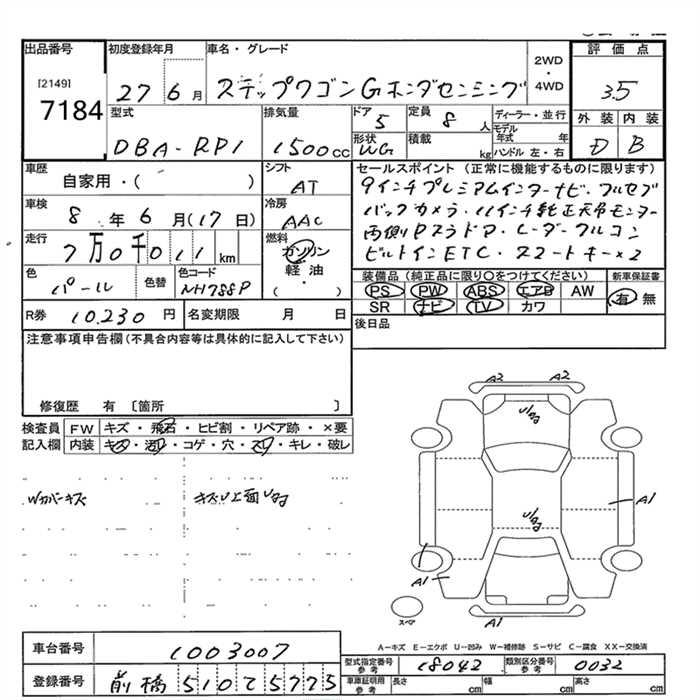 出品番号 初度登録年月 車名・グレード 評価点
[2149]
7184
27 6月 ステップワゴンGホンダセンシング 2WD・4WD 3.5
型式 排気量 ドア 定員 ディーラー・並行 外装 内装
DBA-RP1 1500CC 5 8人 モデル年式 年 D B
形状 積載 ハンドル 左・右
WG kg
車歴 シフト セールスポイント (正常に機能するものに限ります)
自家用・( ) AT 9インチプレミアムインターナビ・フルセグ
車検 冷房 バックカメラ・11インチ純正天吊モニター
8年6月(17日) AAC 両側Pスラドア・レーダークルコン
走行 燃料 ビルトインETC・スマートキー×2
7万0千011km ガソリン・軽油・( )
色 色替 色コード 装備品 (純正品に限り○をつけてください) 新車保証書
パール NH788P PS PW ABS エアB AW 有・無
SR ナビ TV カワ
R券 10,230円 名変期限 月 日 後日品
注意事項申告欄(不具合内容等は具体的に記入して下さい)
修復歴 有〔箇所 〕
検査員 FW キズ・飛石・ヒビ割・リペア跡・×要
記入欄 内装 キズ・汚れ・コゲ・穴・スレ・キレ・破レ
Wカバーキズ
A2 A2
A1
A1
A1
スペア
A-キズ E-エクボ U-凹み W-補修跡 S-サビ C-腐食 XX-交換済
車台番号 1003007
型式指定番号 参考 18042 類別区分番号 参考 0032
登録番号 前橋510て5775
車庫証明用 参考 長さ cm 幅 cm 高さ cm